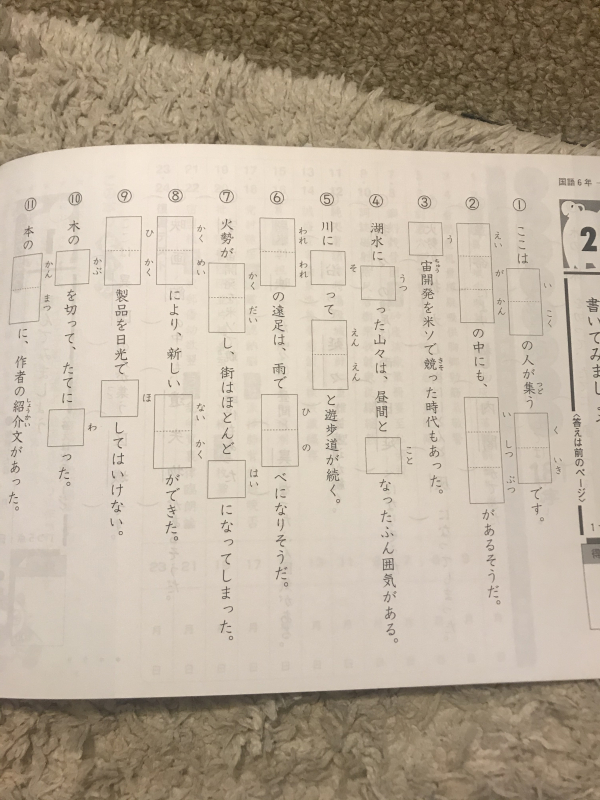 国語6年
2
書いてみまし
〈答えは前のページ〉
① ここは いこく の人が集つどう くいき です。
② えいがかん の中にも、いしつぶつ があるそうだ。
③ う 宙ちゅう開発を米ソで競きそった時代もあった。
④ 湖水に うつ った山々は、昼間と こと なったふん囲気がある。
⑤ 川に そ って えんえん と遊歩道が続く。
⑥ われわれ の遠足は、雨で ひの べになりそうだ。
⑦ 火勢が かくだい し、街はほとんど はい になってしまった。
⑧ かくめい により、新しい ないかく ができた。
⑨ ひかく 製品を日光で ほ してはいけない。
⑩ 木の かぶ を切って、たてに わ った。
⑪ 本の かんまつ に、作者の紹介しょうかい文があった。